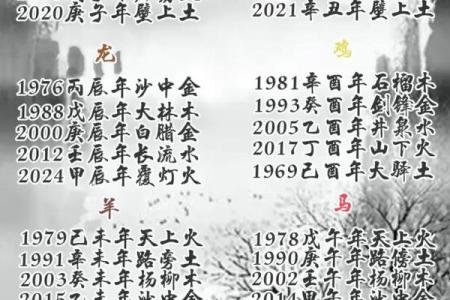 2020庚子年壁上土
龙
1976丙辰年沙中金
1988戊辰年大林木
2000庚辰年白腊金
2012壬辰年长流水
2024甲辰年覆灯火
羊
1979己未年天上火
1991辛未年路旁土
2003癸未年杨柳木
2015乙未年沙中金
2021辛丑年壁上土
鸡
1981辛酉年石榴木
1993癸酉年剑锋金
2005乙酉年井泉水
2017丁酉年山下火
1969己酉年大驿土
马
1978戊午年天上火
1990庚午年路傍土
2002壬午年杨柳木